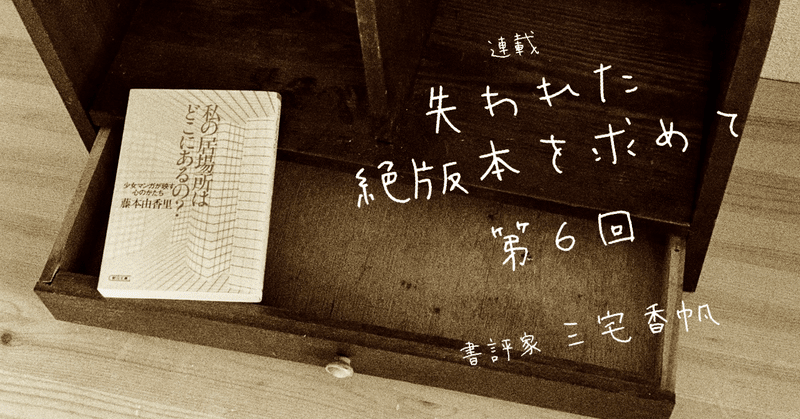 連載
失われた
絶版本を求めて
第6回
書評家 三宅香帆
私の居場所は
どこにあるの?
少女マンガが映す
心のかたち
藤本由香里
朝日文庫